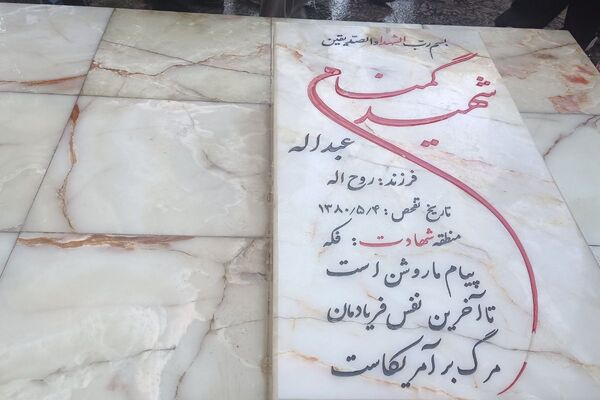 بسم رب الشهداء والصدیقین
شهید گمنام
عبداله
فرزند: روح اله
تاریخ تفحص: ۱۳۸۰/۵/۴
منطقه شهادت: فکه
پیام ما روشن است
تا آخرین نفس فریادمان
مرگ بر آمریکاست